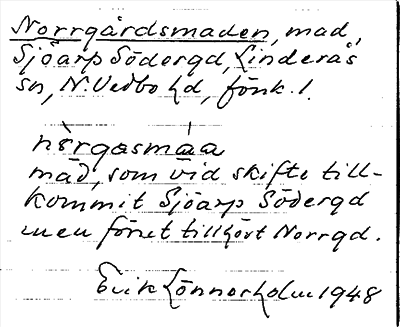 Norrgårdsmaden, mad,
Sjöarp Södergd, Linderås
sn, N. Vedbo hd, fönk. 1.
nòrgasmáa
mad, som vid skifte till-
kommit Sjöarp Södergd
men förut tillhört Norrgd.
Erik Lönnerholm 1948